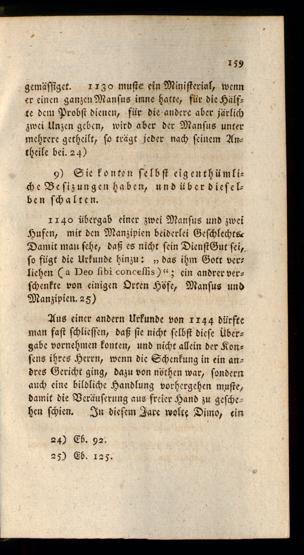 159
gemässiget. 1130 muste ein Ministerial, wenn
er einen ganzen Mansus inne hatte, für die Hälf-
te dem Probst dienen, für die andere aber järlich
zwei Unzen geben, wird aber der Mansus unter
mehrere getheilt, so trägt jeder nach seinem An-
theile bei. 24)
9) Sie konten selbst eigenthümli-
che Besizungen haben, und über diesel-
ben schalten.
1140 übergab einer zwei Mansus und zwei
Hufen, mit den Manzipien beiderlei Geschlechts.
Damit man sehe, daß es nicht sein DienstGut sei,
so fügt die Urkunde hinzu: „das ihm Gott ver-
liehen (a Deo sibi concessis)“; ein andrer ver-
schenkte von einigen Orten Höfe, Mansus und
Manzipien. 25)
Aus einer andern Urkunde von 1144 dürfte
man fast schliessen, daß sie nicht selbst diese Über-
gabe vornehmen konten, und nicht allein der Kon-
sens ihres Herrn, wenn die Schenkung in ein an-
dres Gericht ging, dazu von nöthen war, sondern
auch eine bildliche Handlung vorhergehen muste,
damit die Veräuserung aus freier Hand zu gesche-
hen schien. In diesem Jare wolte Dimo, ein
24) Eb. 92.
25) Eb. 125.